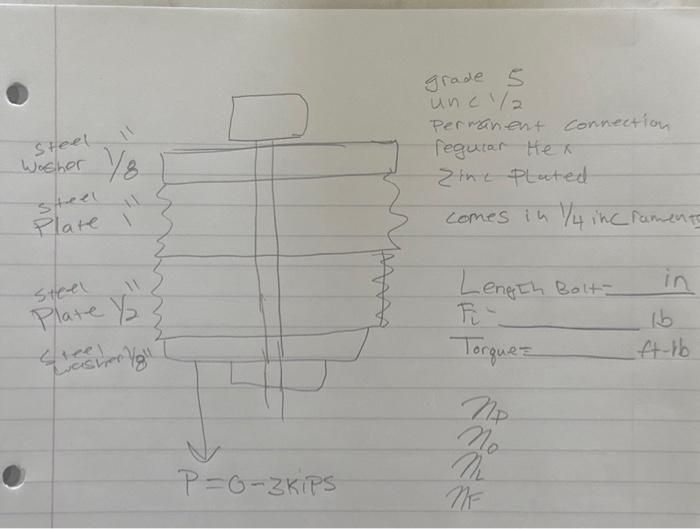 grade 5
unc 1/2
Permanent connection
regular Hex
Zinc Plated
comes in 1/4 incraments
Steel
Washer 1/8"
Steel
Plate 1"
Steel
Plate 1/2"
Steel
washer 1/8"
P=0-3KiPS
Length Bolt=____in
Fi=____lb
Torque=____ft-lb
np
no
nL
nF